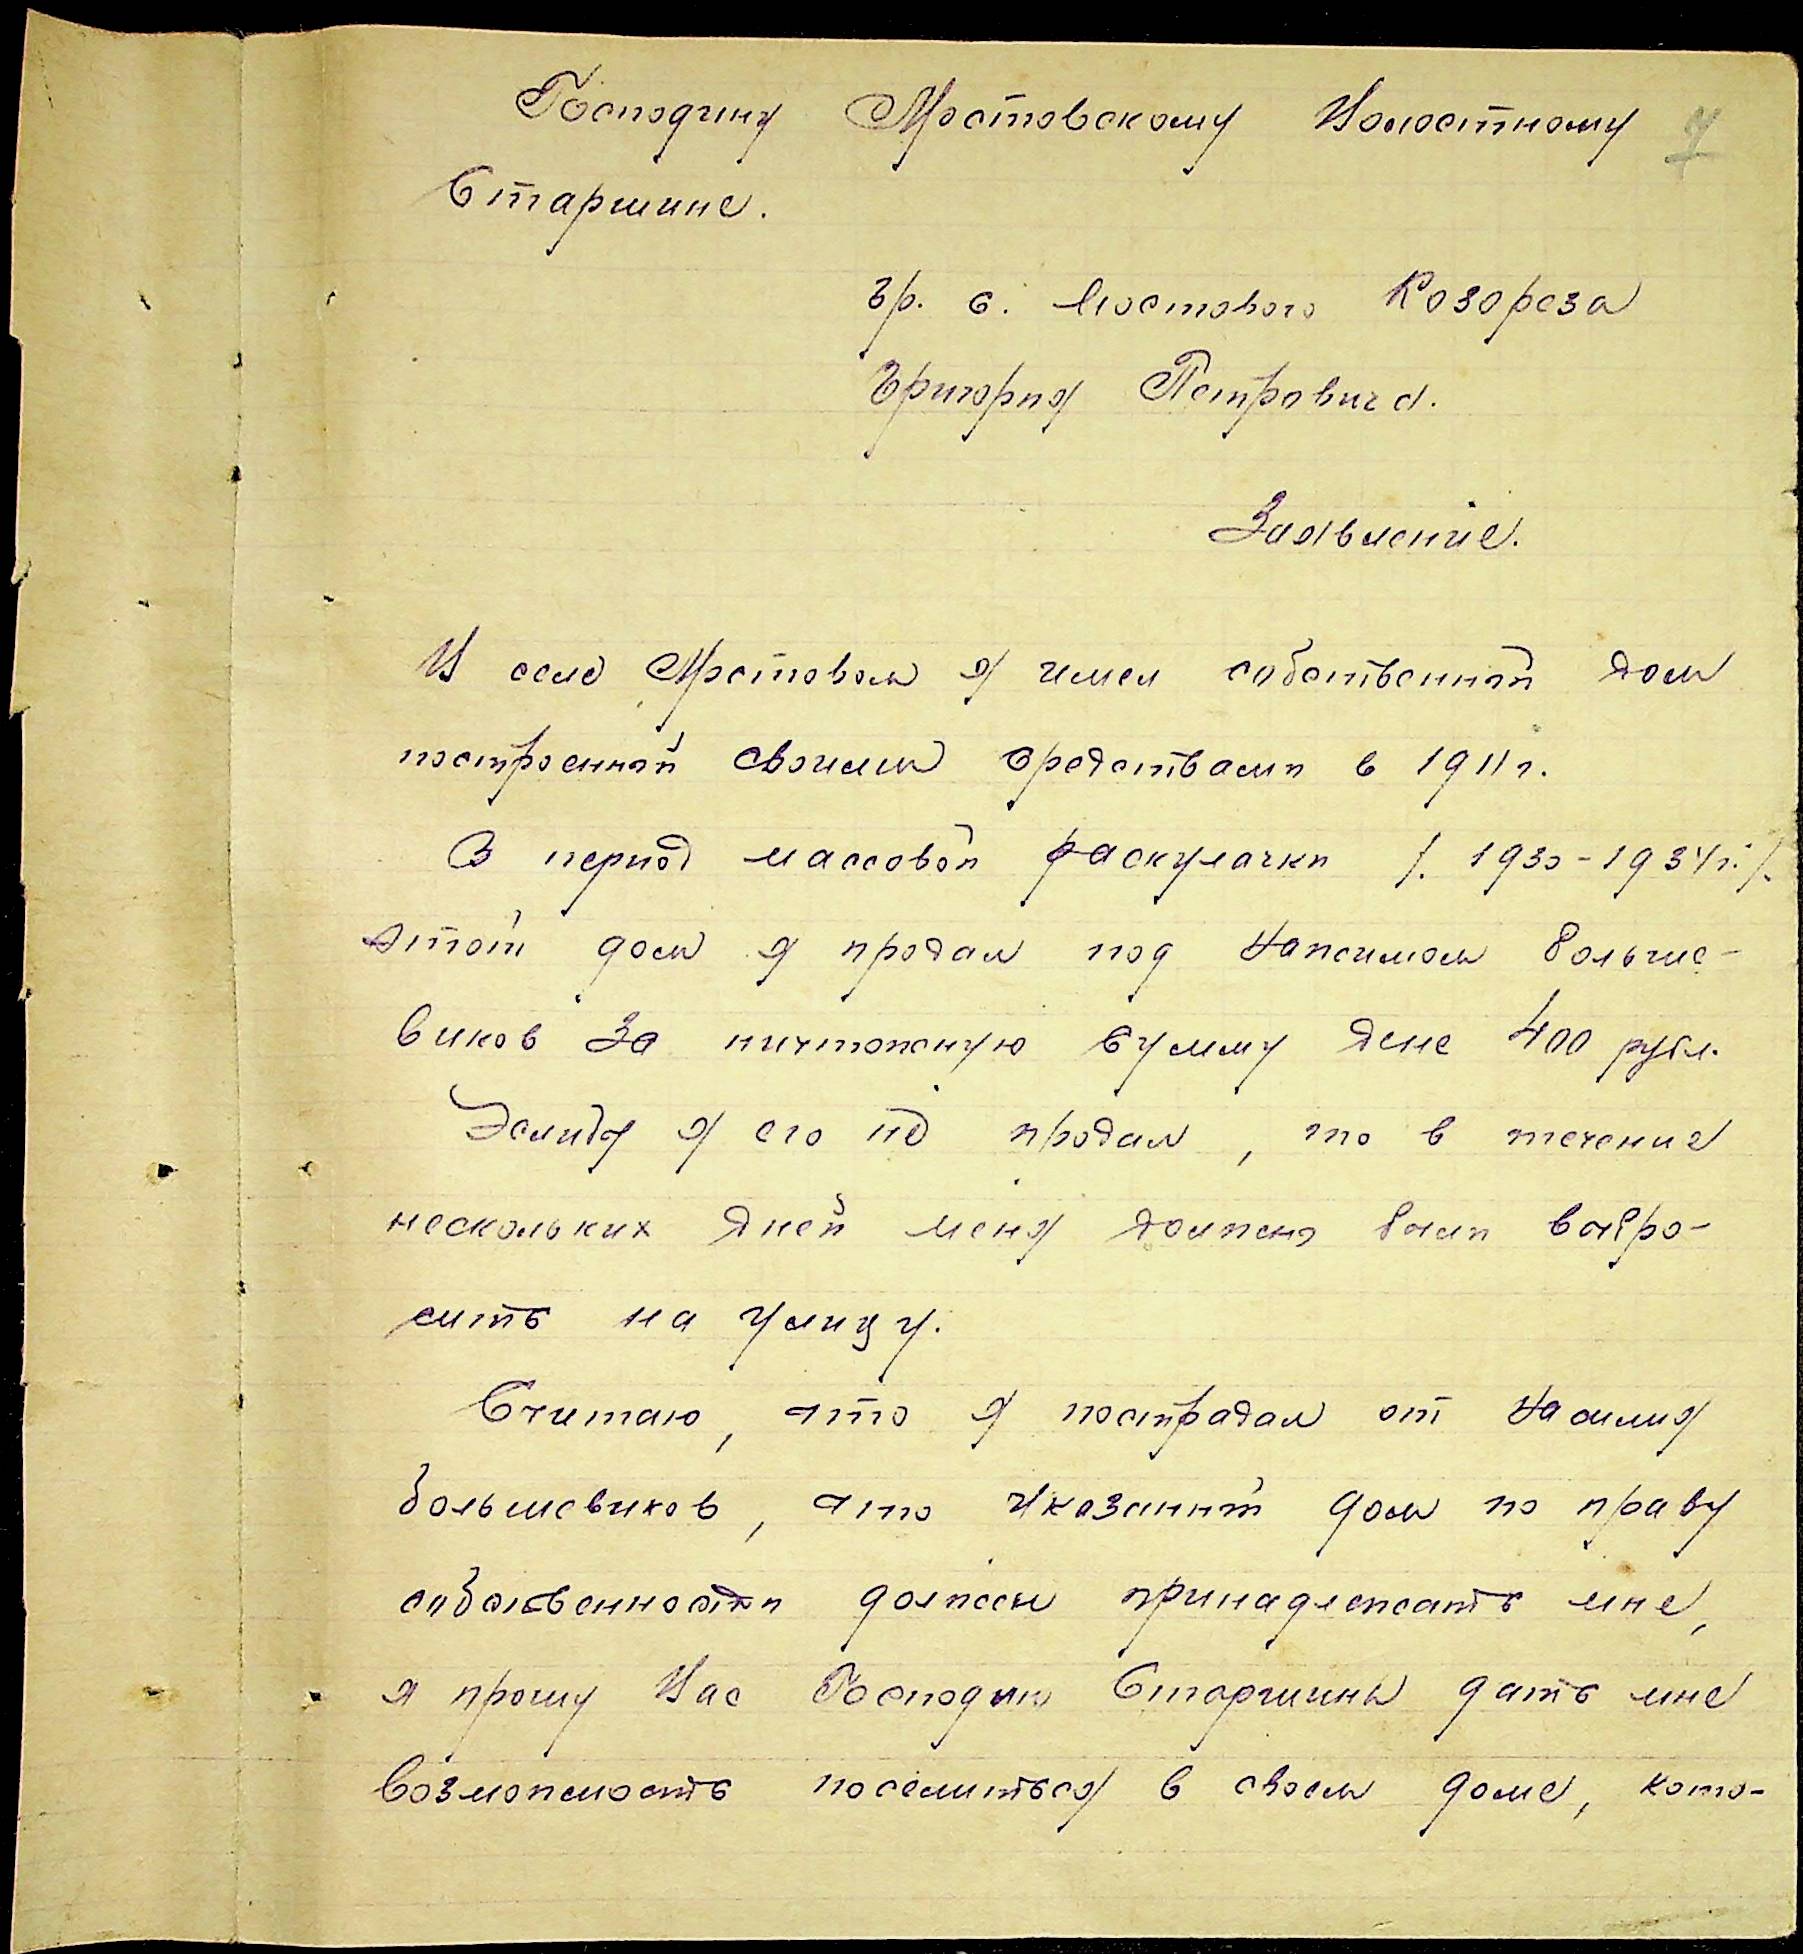 Господину Мостовскому Волостному 7
Старшине.
гр. с. Мостового Козореза
Григория Петровича.
Заявление.
В селе Мостовом я имел собственный дом
построенный своими средствами в 1911 г.
В период массовой раскулачки /. 1930-1934 г. /.
этот дом я продал под нажимом больше-
виков за ничтожную сумму денег 400 рубл.
Еслибы я его не продал, то в течение
нескольких дней меня должны были выбро-
сить на улицу.
Считаю, что я пострадал от насилия
большевиков, что указанный дом по праву
собственности должен принадлежать мне,
я прошу Вас Господин Старшина дать мне
возможность поселиться в своем доме, кото-